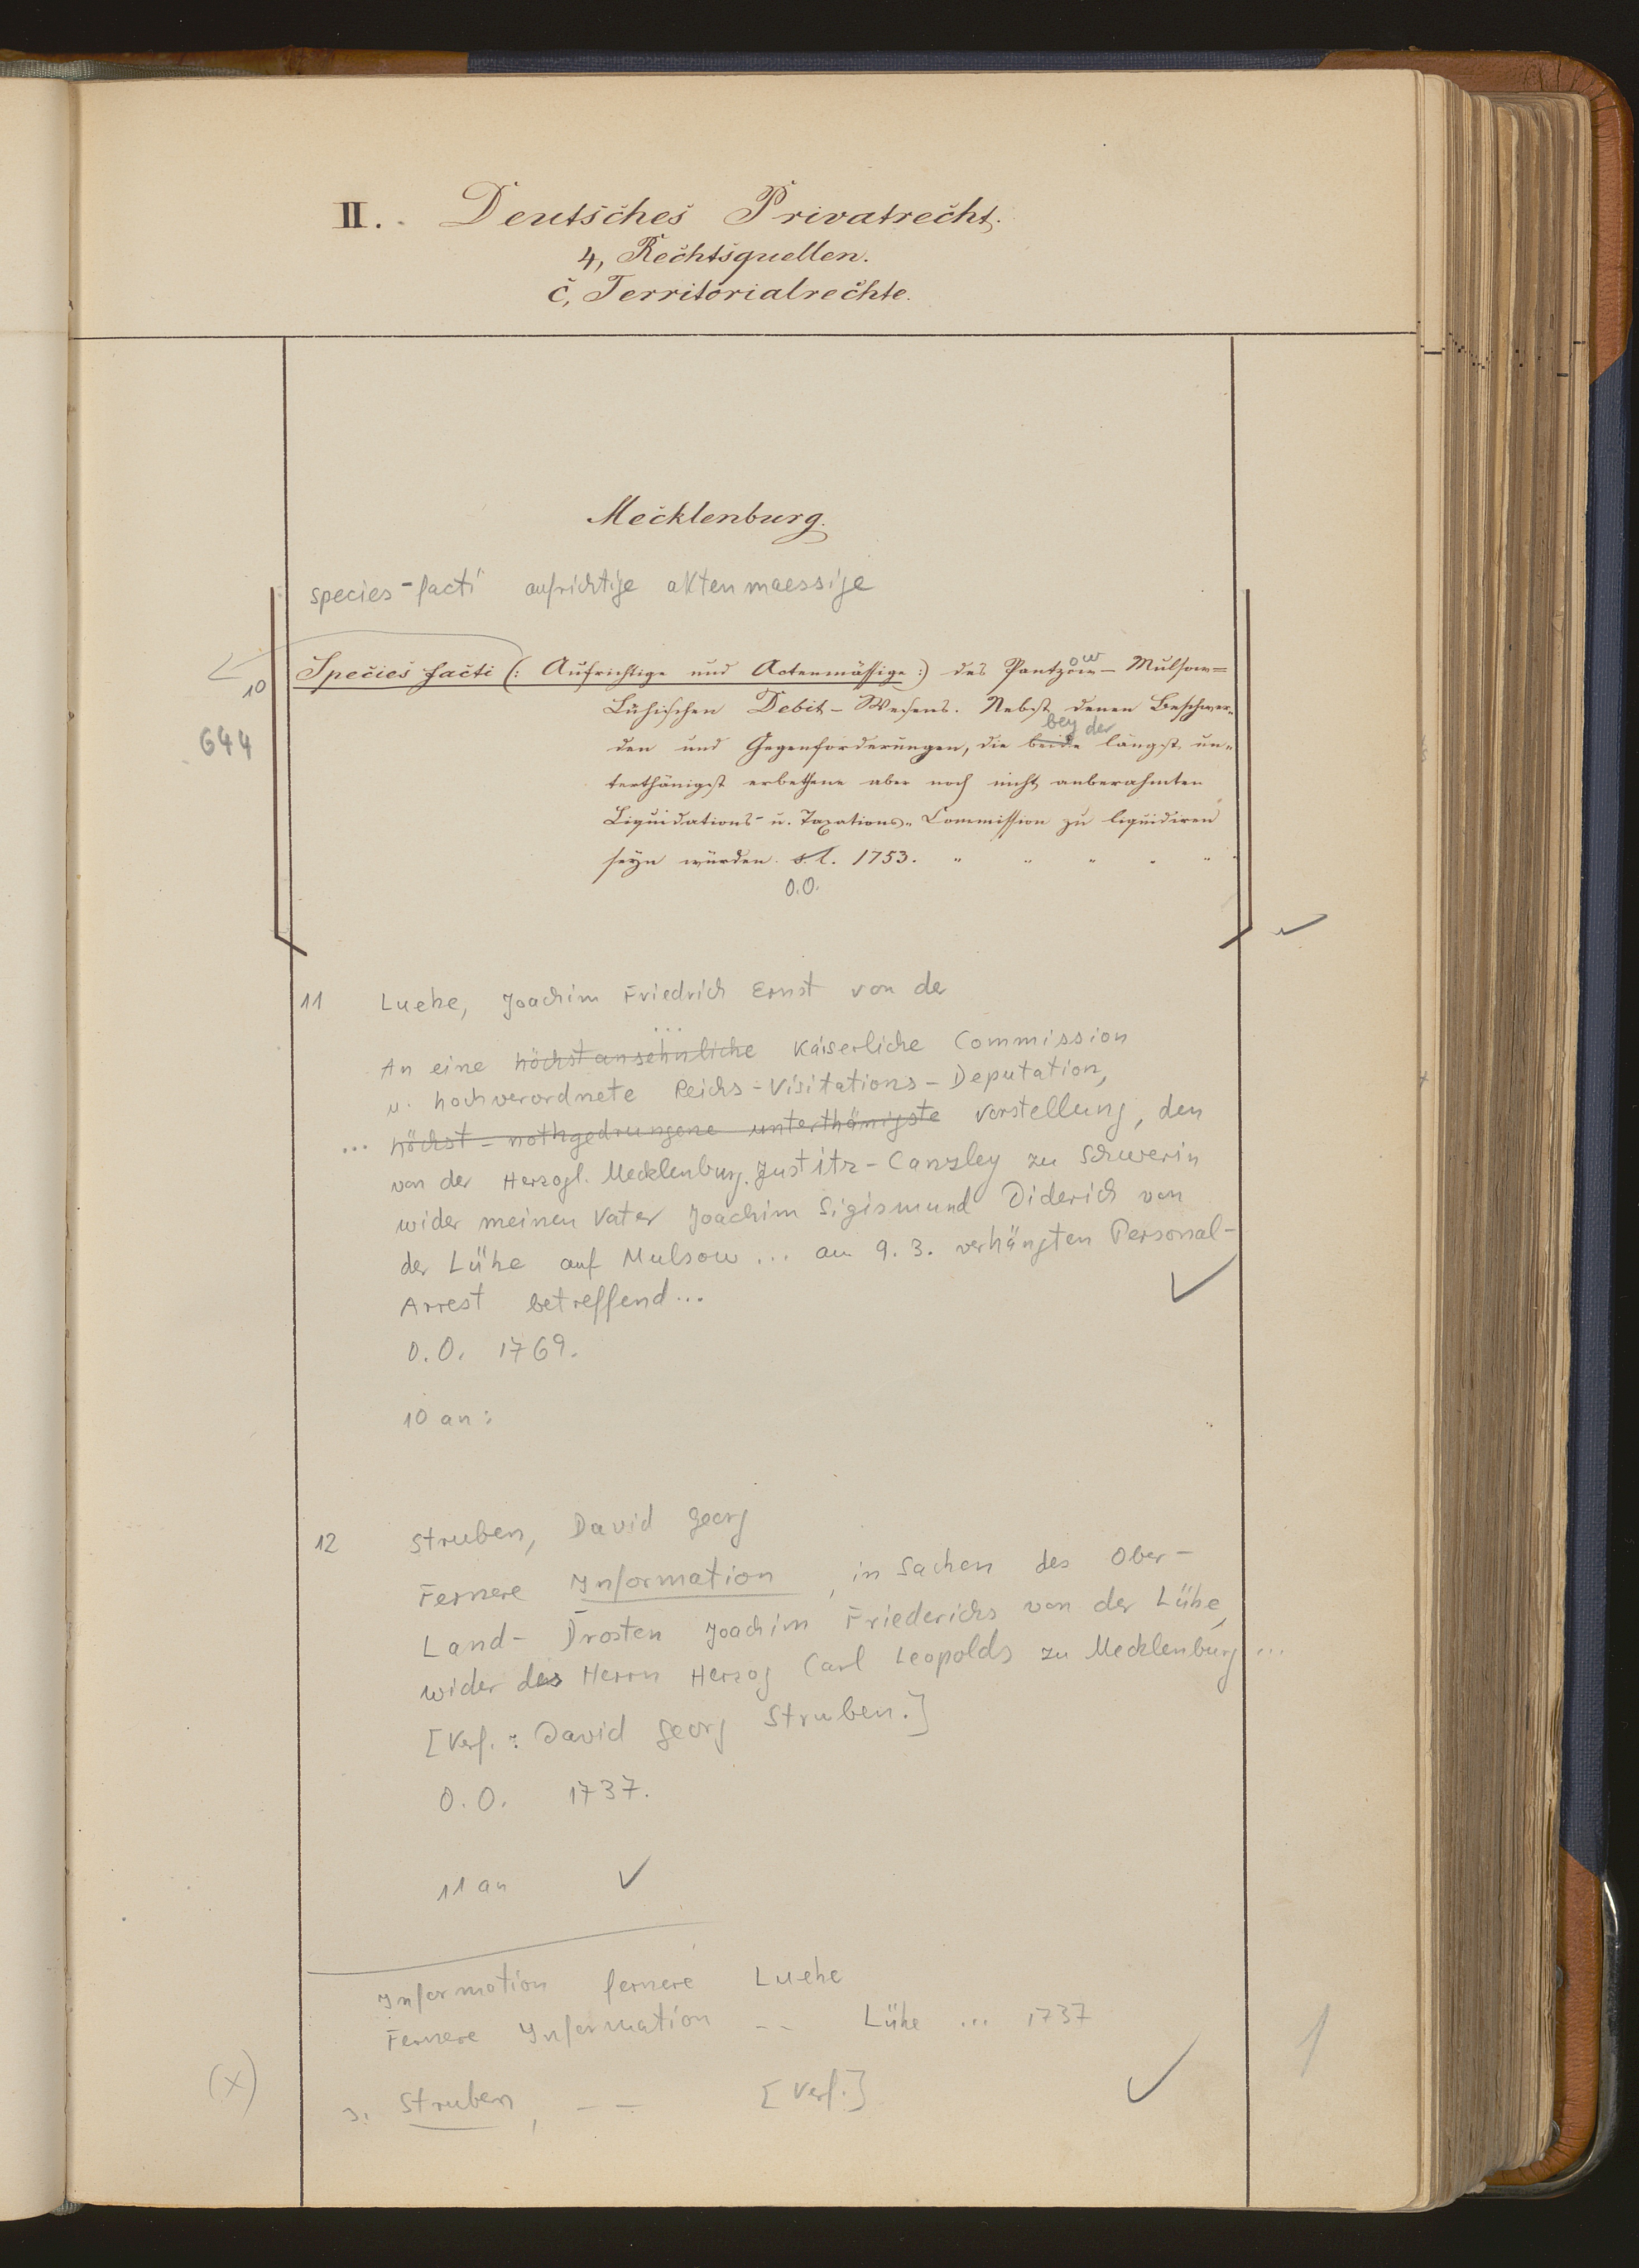 II. Deutsches Privatrecht.
4, Rechtsquellen.
c, Territorialrechte.
Mecklenburg.
species-facti aufrichtige aktenmaessige
10 Species facti (: Aufrichtige und Actenmässige :) des Pantzow - Mulsow=
ow
Lühischen Debit-Wesens. Nebst denen Beschwer-
bey der
644 den und Gegenforderungen, die beide längst un-
terthänigst erbethene aber noch nicht anberahmten
Liquidations- u. Taxations-Commission zu liquidiren
seyn würden. s.l. 1753. " " " " "
O.O.
11 Luehe, Joachim Friedrich Ernst von der
...
An eine höchstansehnliche Kaiserliche Commission
u. hochverordnete Reichs-Visitations-Deputation,
... höchst-nothgedrungene unterthänigste Vorstellung, den
von der Herzogl. Mecklenburg. Justitz-Canzley zu Schwerin
wider meinen Vater Joachim Sigismund Diderich von
der Lühe auf Mulsow ... am 9. 3. verhängten Personal-
Arrest betreffend...
O.O. 1769.
10 an:
12 Struben, David Georg
Fernere Information, in Sachen des Ober-
Land-Drosten Joachim Friederichs von der Lühe,
wider des Herrn Herzog Carl Leopolds zu Mecklenburg ...
[Verf.: David Georg Struben.]
O.O. 1737.
11 an
Information fernere Luehe
Fernere Information -- Lühe ... 1737
(x) 3. Struben, -- [Verf.]
1